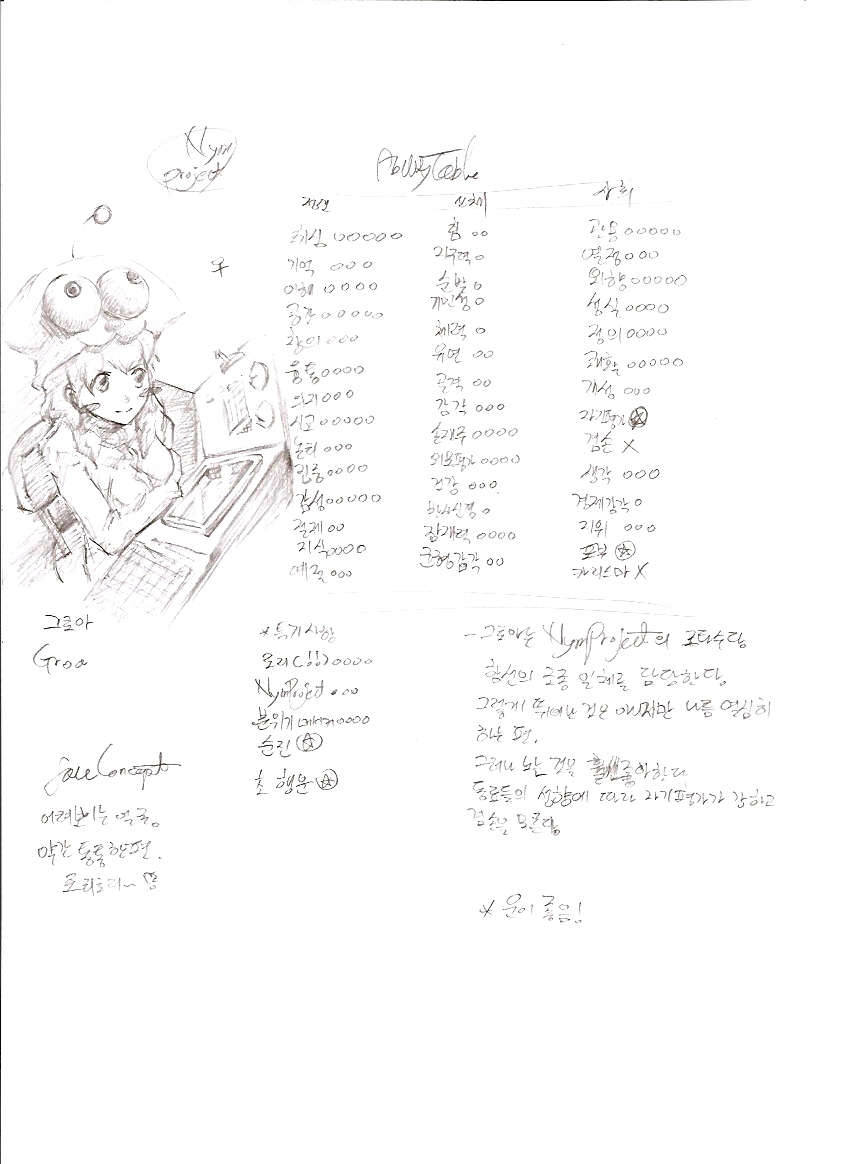 Nym
project
Ability Table
신체
사회
기억 ○○○
이해 ○○○○
공간 ○○○○○
창의 ○○○
융통 ○○○○
의지 ○○○
사고 ○○○○○
논리 ○○○
집중 ○○○○
감성 ○○○○○
절제 ○○
지식 ○○○○
예절 ○○○
힘 ○○
지구력 ○
순발 ○
체력 ○
유연 ○○
골격 ○○
감각 ○○○
손재주 ○○○○
외모평가 ○○○○
건강 ○○○
잠재력 ○○○○
균형감각 ○○
관용 ○○○○○
열정 ○○○
외향 ○○○○○
정의 ○○○○
쾌활 ○○○○○
개성 ○○○
자기평가 ☆
겸손 X
생각 ○○○
경제감각 ○
지위 ○○○
카리스마 X
그로아
Groa
*특기사항
요리(!!) ○○○○
NymProject ○○○
분위기메이커 ○○○○
순진 ☆
초 행운 ☆
Concept
어려보이는 얼굴.
약간 통통한편.
- 그로아는 NymProject의 조타수당
함선의 조종 일체를 담당한당
그렇게 뛰어난 것은 아니지만 나름 열심히
하는 편.
그러나 노는 것을 훨씬 좋아한다
동료들의 성향에 따라 자기평가가 강하고
겸손을 모른당
* 운이 좋음!